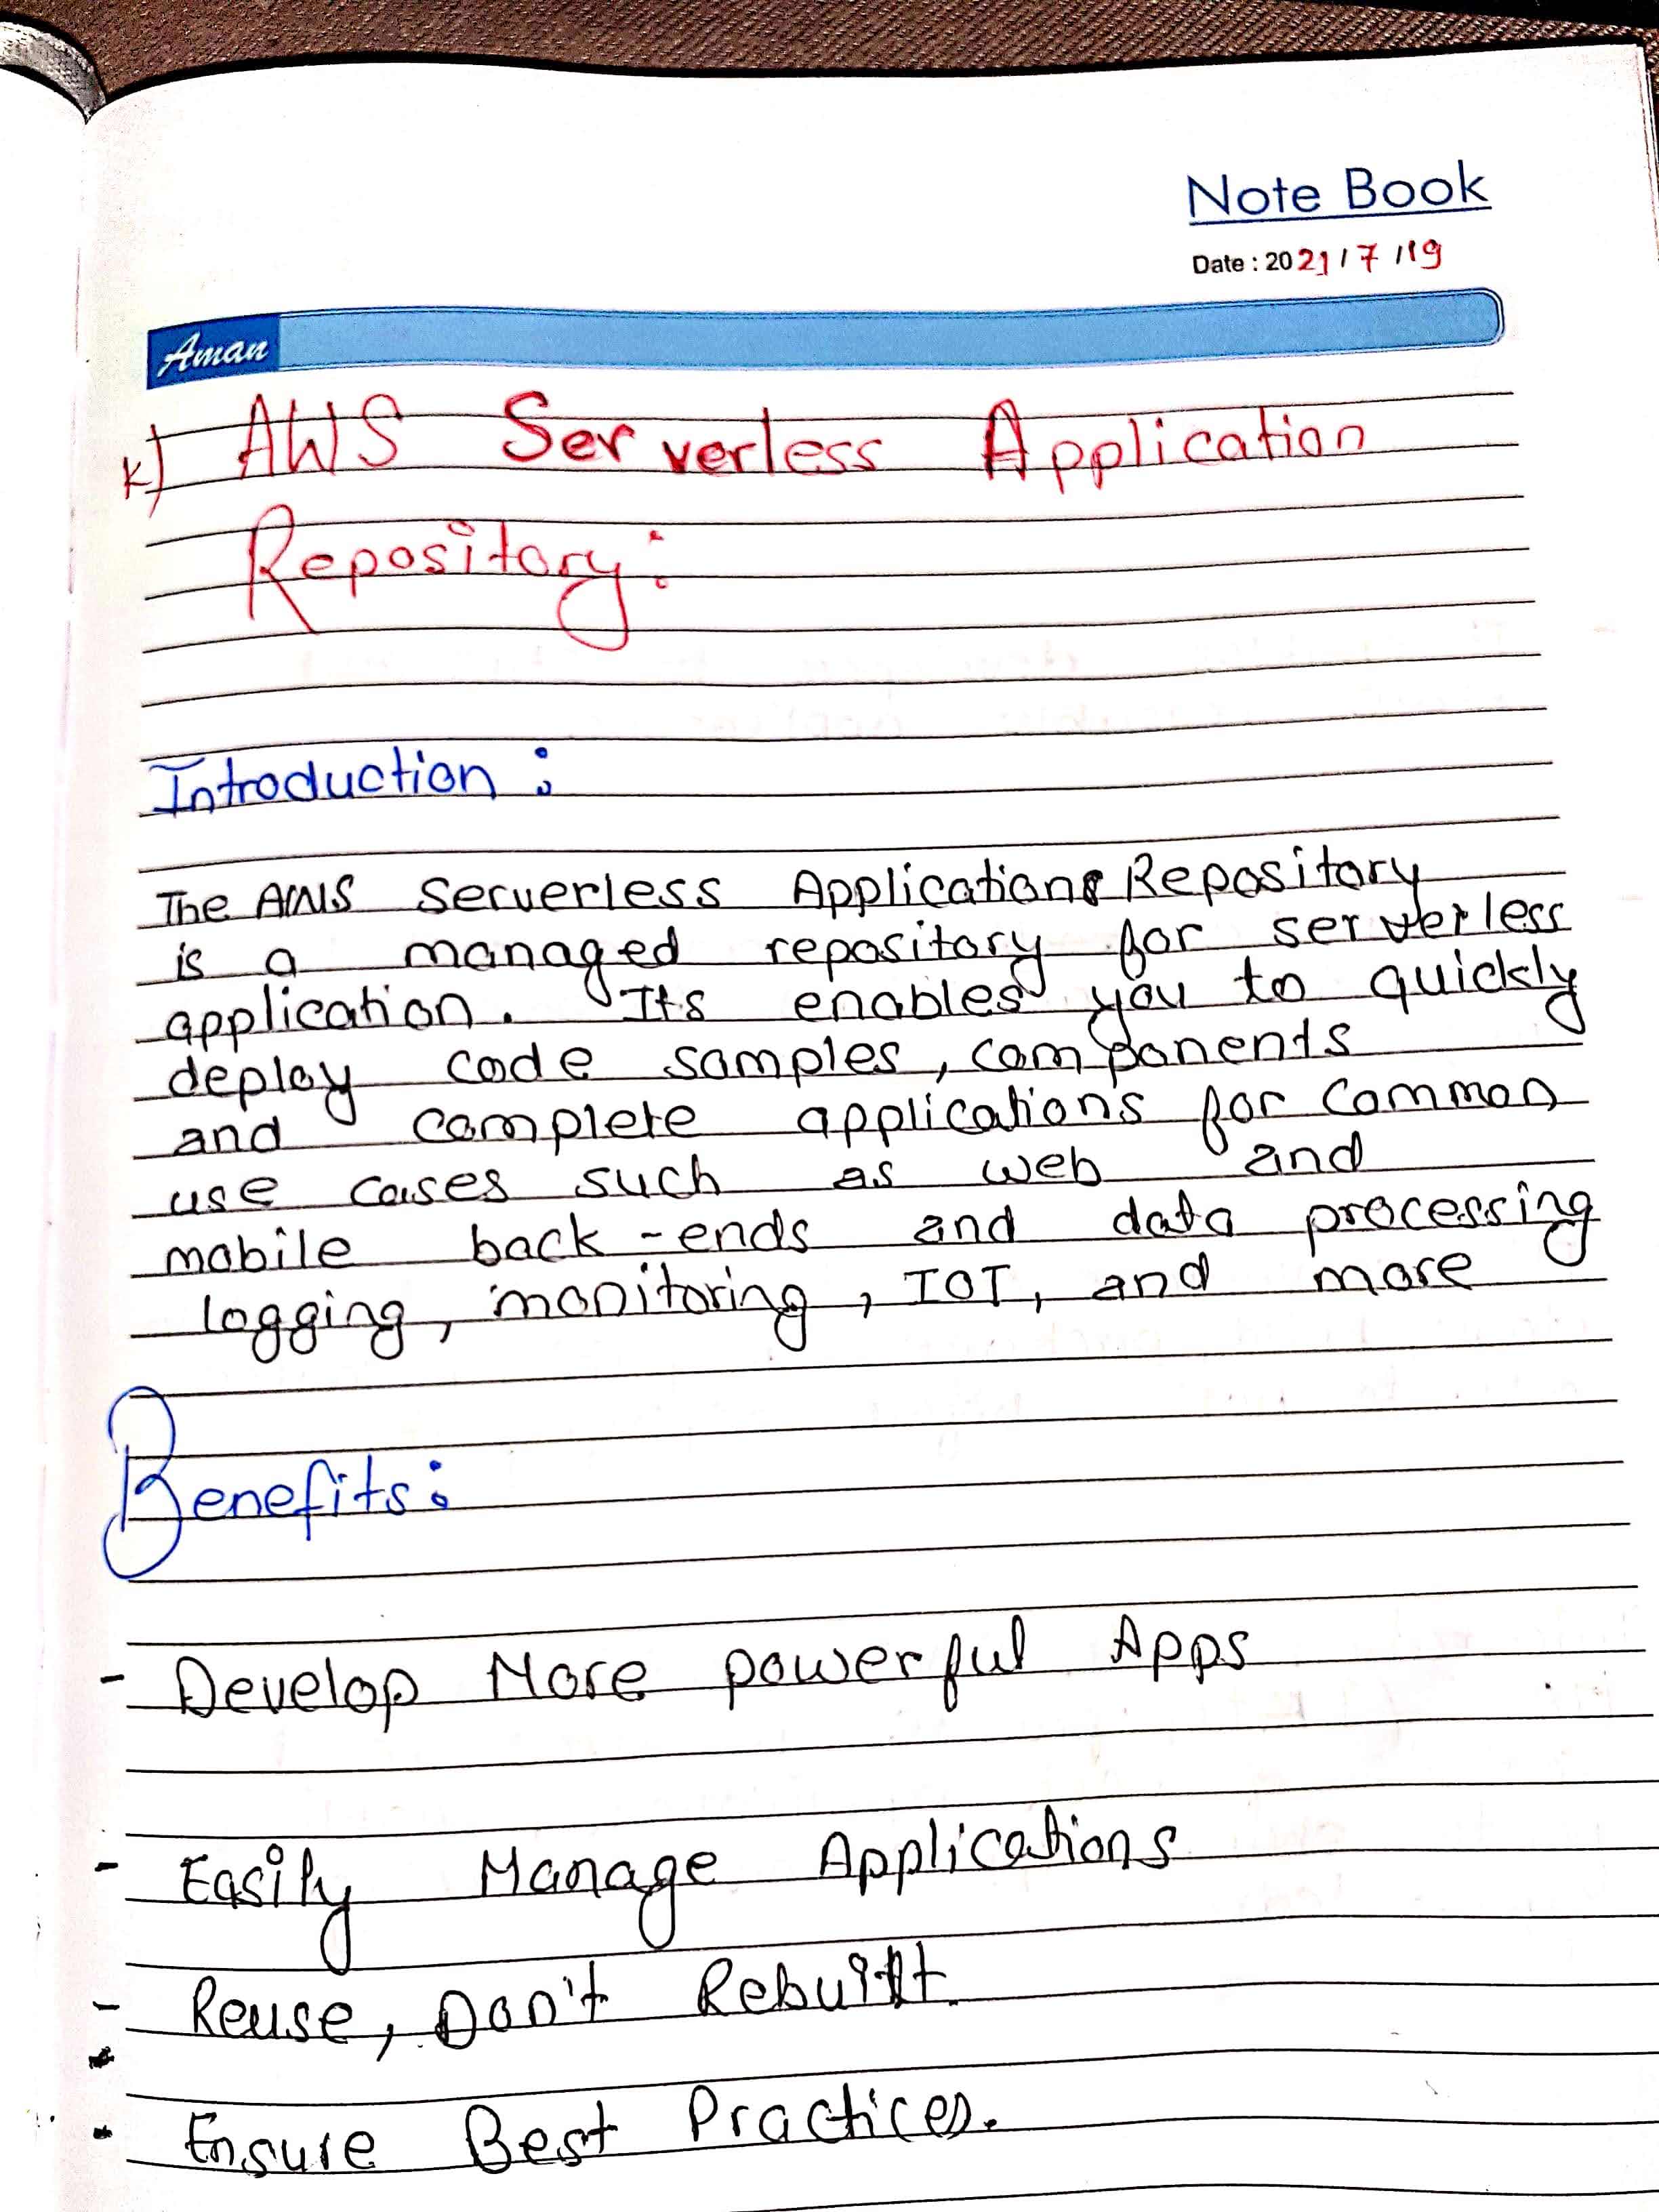 Note Book
Date : 2021/7/19
Aman
K) AWS Serverless Application
Repository:
Introduction:
The AWS Serverless Applications Repository
is a managed repository for serverless
application. Its enables you to quickly
deploy code samples, components
and complete applications for common
use cases such as web and
mobile back-ends and data processing
logging, monitoring, IOT, and more
Benefits:
- Develop More powerful Apps
- Easily Manage Applications
- Reuse, Don't Rebuilt
- Ensure Best Practices.